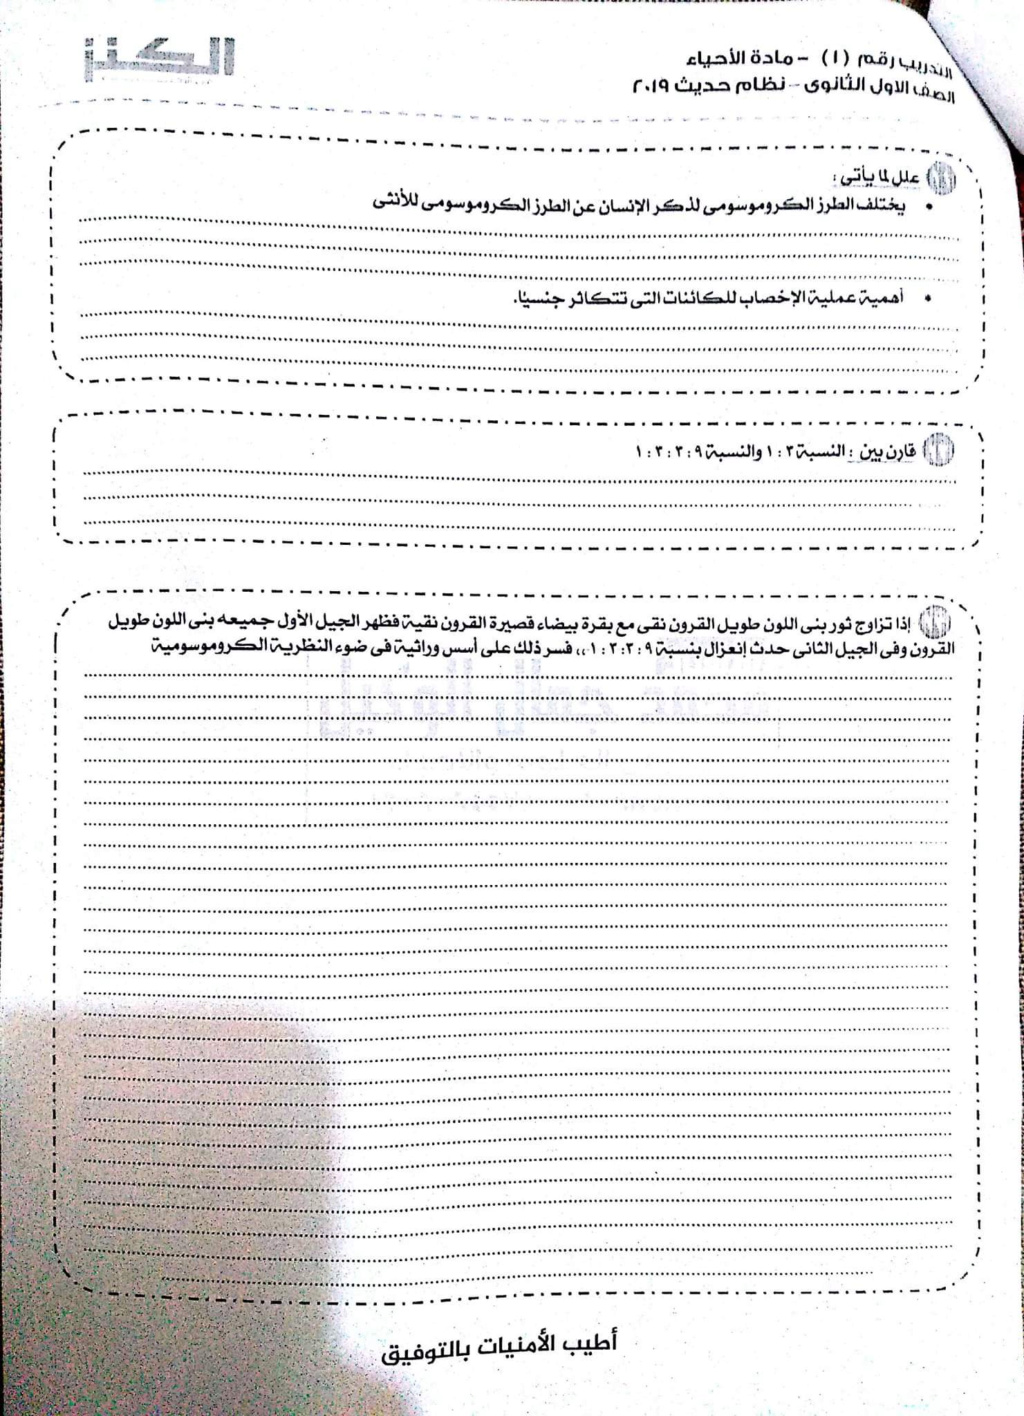 الكنز
التدريب رقم (١) - مادة الأحياء
الصف الاول الثانوى - نظام حديث ٢٠١٩
علل لما يأتى :
• يختلف الطرز الكروموسومى لذكر الإنسان عن الطرز الكروموسومى للأنثى
• أهمية عملية الإخصاب للكائنات التى تتكاثر جنسيًا.
قارن بين : النسبة ٣ : ١ والنسبة ٩ : ٣ : ٣ : ١
إذا تزاوج ثور بنى اللون طويل القرون نقى مع بقرة بيضاء قصيرة القرون نقية فظهر الجيل الأول جميعه بنى اللون طويل
القرون وفى الجيل الثانى حدث إنعزال بنسبة ٩ : ٣ : ٣ : ١ ،، فسر ذلك على أسس وراثية فى ضوء النظرية الكروموسومية
أطيب الأمنيات بالتوفيق